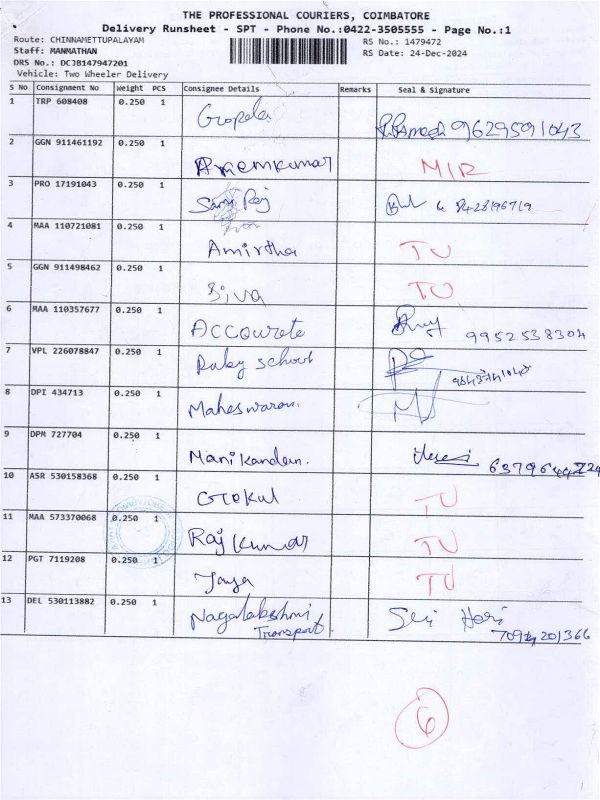 THE PROFESSIONAL COURIERS, COIMBATORE
Delivery Runsheet - SPT - Phone No.:0422-3505555 - Page No.:1
Route: CHINNAMETTUPALAYAM RS No.: 1479472
Staff: MANMATHAN RS Date: 24-Dec-2024
DRS No.: DCJB147947201
Vehicle: Two Wheeler Delivery
S No Consignment No Weight PCS Consignee Details Remarks Seal & Signature
1 TRP 608408 0.250 1 9629591043
2 GGN 911461192 0.250 1 Premkumar
3 PRO 17191043 0.250 1 Raj
4 MAA 110721081 0.250 1 Amirtha TU
5 GGN 911498462 0.250 1 Siva TU
6 MAA 110357677 0.250 1 Accourate 9952538304
7 VPL 226078847 0.250 1 Ruby school
8 DPI 434713 0.250 1 Maheswaran.
9 DPM 727704 0.250 1 Manikandan.
10 ASR 530158368 0.250 1 Gokul TU
11 MAA 573370068 0.250 1 Raj Kumar TU
12 PGT 7119208 0.250 1 Jaya TU
13 DEL 530113882 0.250 1 Nagalakshmi Sri Hari
Transport
6